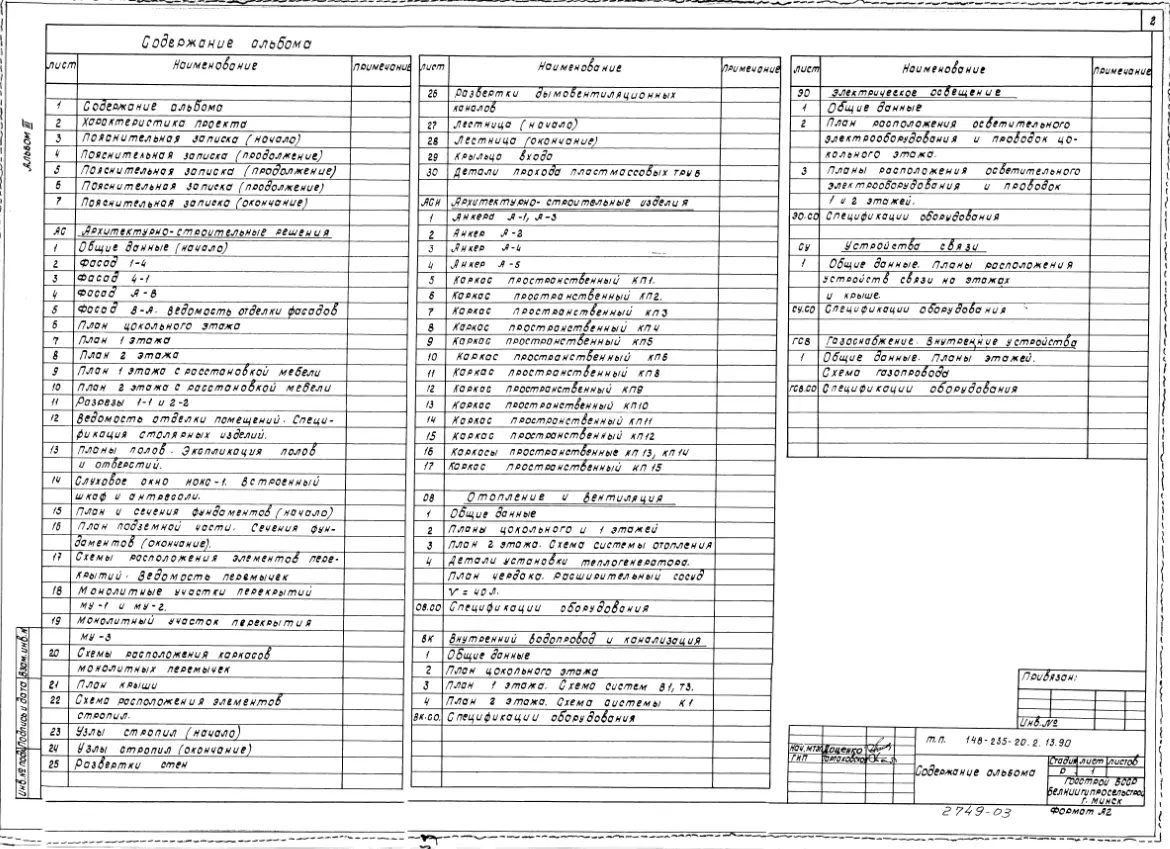 2
Содержание альбома
Альбом III
лист Наименование Примечание
1 Содержание альбома
2 Характеристика проекта
3 Пояснительная записка (начало)
4 Пояснительная записка (продолжение)
5 Пояснительная записка (продолжение)
6 Пояснительная записка (продолжение)
7 Пояснительная записка (окончание)
АС Архитектурно-строительные решения
1 Общие данные (начало)
2 Фасад 1-4
3 Фасад 4-1
4 Фасад А-В
5 Фасад В-А. Ведомость отделки фасадов
6 План цокольного этажа
7 План 1 этажа
8 План 2 этажа
9 План 1 этажа с расстановкой мебели
10 План 2 этажа с расстановкой мебели
11 Разрезы 1-1 и 2-2
12 Ведомость отделки помещений. Специ-
фикация столярных изделий.
13 Планы полов. Экспликация полов
и отверстий.
14 Слуховое окно нокс-1. Встроенный
шкаф и антресоли.
15 План и сечения фундаментов (начало)
16 План подземной части. Сечения фун-
даментов (окончание).
17 Схемы расположения элементов пере-
крытий. Ведомость перемычек
18 Монолитные участки перекрытий
МУ-1 и МУ-2.
19 Монолитный участок перекрытия
МУ-3
20 Схемы расположения каркасов
монолитных перемычек
21 План крыши
22 Схема расположения элементов
стропил.
23 Узлы стропил (начало)
24 Узлы стропил (окончание)
25 Развертки стен
лист Наименование Примечание
26 Развертки дымовентиляционных
каналов
27 Лестница (начало)
28 Лестница (окончание)
29 Крыльцо входа
30 Детали прохода пластмассовых труб
АСИ Архитектурно-строительные изделия
1 Анкера А-1, А-3
2 Анкер А-2
3 Анкер А-4
4 Анкер А-5
5 Каркас пространственный КП1.
6 Каркас пространственный КП2.
7 Каркас пространственный КП3
8 Каркас пространственный КП4
9 Каркас пространственный КП5
10 Каркас пространственный КП6
11 Каркас пространственный КП8
12 Каркас пространственный КП9
13 Каркас пространственный КП10
14 Каркас пространственный КП11
15 Каркас пространственный КП12
16 Каркасы пространственные КП13, КП14
17 Каркас пространственный КП15
ОВ Отопление и вентиляция
1 Общие данные
2 Планы цокольного и 1 этажей
3 План 2 этажа. Схема системы отопления
4 Детали установки теплогенератора.
План чердака. Расширительный сосуд
V = 40 л.
ОВ.СО Спецификации оборудования
ВК Внутренний водопровод и канализация
1 Общие данные
2 План цокольного этажа
3 План 1 этажа. Схема систем В1, Т3.
4 План 2 этажа. Схема системы К1
ВК.СО. Спецификации оборудования
лист Наименование Примечание
ЭО Электрическое освещение
1 Общие данные
2 План расположения осветительного
электрооборудования и проводок цо-
кольного этажа.
3 Планы расположения осветительного
электрооборудования и проводок
1 и 2 этажей.
ЭО.СО Спецификации оборудования
СУ Устройства связи
1 Общие данные. Планы расположения
устройств связи на этажах
и крыше.
СУ.СО Спецификации оборудования
ГСВ Газоснабжение. Внутренние устройства
1 Общие данные. Планы этажей.
Схема газопровода
ГСВ.СО Спецификации оборудования
Инв.№ подл. Подпись и дата Взам.инв.№
Привязан:
Инв.№
т.п. 148-235-20.2.13.90
Доценко
ГИП
Содержание альбома
Стадия лист листов
Р 1
Госстрой БССР
Белниигипросельстрой
г. Минск
2749-03
Формат А2